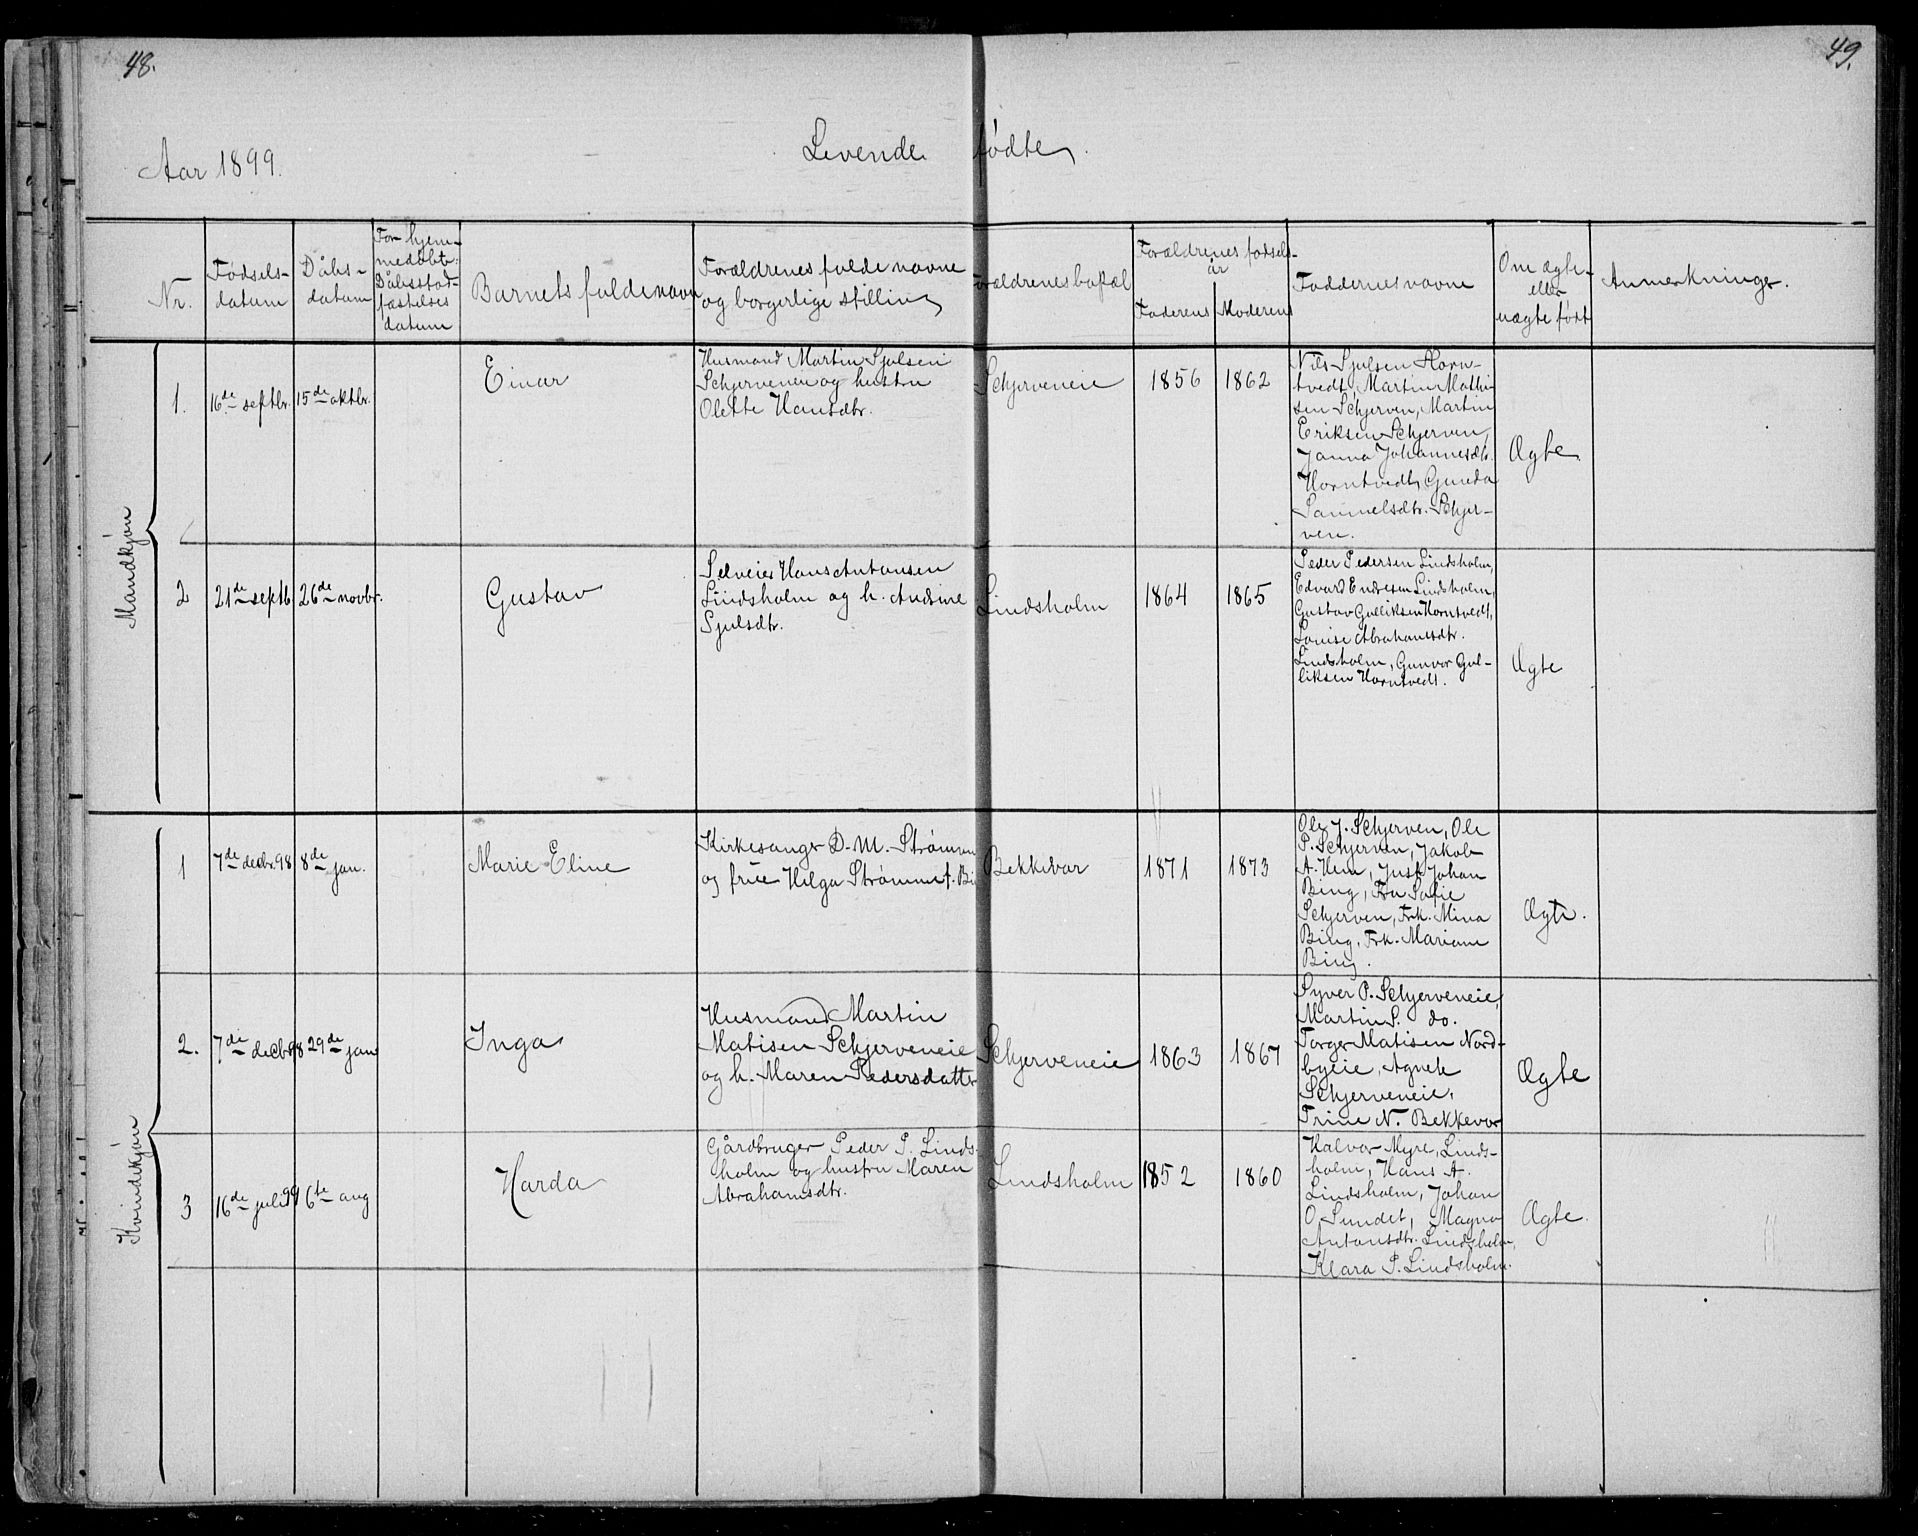 48.
49.
Aar 1899.
Levende fødte.
Nr.
Fødsels-
datum
Dåbs-
datum
For hjem-
medøbte:
Dåbsstad-
fæstelses
datum
Barnets fulde navn
Forældrenes fulde navne
og borgerlige stilling
Forældrenes bopæl
Forældrenes fødsels-
år
Faderens
Moderens
Faddernes navne
Om ægte
eller
uægte født
Anmerkninger.
Mandkjøn
1.
16de septbr.
15de oktbr.
Einar
Husmand Martin Sjulsen
Schjerveneie og hustru
Olette Hansdtr.
Schjerveneie
1856
1862
Nils Sjulsen Horn-
tvedt, Martin Mathi-
sen Schjerven, Martin
Eriksen Schjerven,
Janna Johannesdtr.
Horntvedt, Gunda
Samuelsdtr. Schjer-
ven.
Ægte.
2
21de septb
26de novbr.
Gustav
Selveier Hans Antonsen
Lindsholm og h. Andrine
Sjulsdtr.
Lindsholm
1864
1865
Peder Pedersen Lindsholm,
Edvard Endresen Lindsholm,
Gustav Gulliksen Horntvedt,
Louise Abrahamsdtr.
Lindsholm, Gunvor Gul-
liksen Horntvedt.
Ægte
Kvindekjøn
1
7de decbr. 98
8de jan.
Marie Eline
Kirkesanger D. M. Strømme
og frue Helga Strømme f. Bi
Bekkevar
1871
1873
Ole J. Schjerven, Ole
P. Schjerven, Jakob
A. Hem, Just Johan
Bing, Fru Sofie
Schjerven, Frk. Mina
Bing, Frk. Mariane
Bing.
Ægte.
2.
7de decb 98
29de jan
Inga
Husmand Martin
Matisen Schjerveneie
og h. Maren Pedersdatter
Schjerveneie
1863
1867
Syver P. Schjerveneie,
Martin S. do.
Torger Matisen Nord-
byeie, Agnete
Schjerveneie,
Trine N. Bekkevar
Ægte
3
16de juli 99
6te aug
Harda
Gårdbruger Peder P. Linds-
holm og hustru Maren
Abrahamsdtr.
Lindsholm
1852
1860
Halvor Myre, Linds-
holm, Hans A.
Lindsholm, Johan
O. Sundet, Magna
Antonsdtr. Lindsholm,
Klara P. Lindsholm.
Ægte.